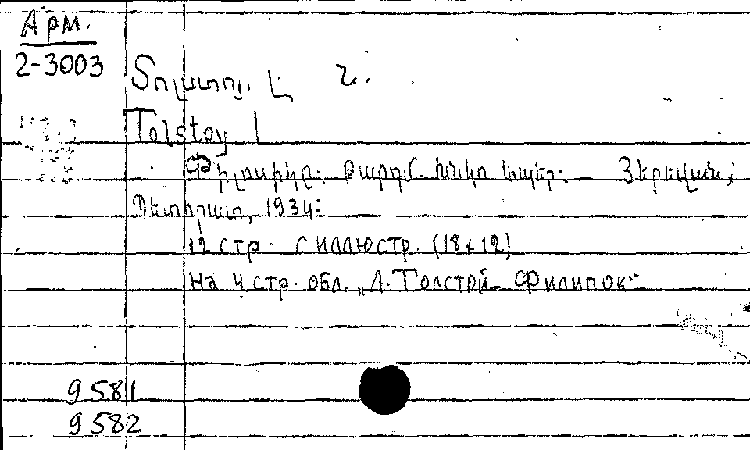 Арм.
2-3003
Տոլստոյ. Լ. Ն.
Tolstoy L
Ֆիլիպիկը: Թարգմ. Խնկո Ապեր: — Յերեվան,
Պետհրատ, 1934:
12 стр. с иллюстр. (18×12)
На 4 стр. обл. „Л. Толстой — Филипок"
9581
9582